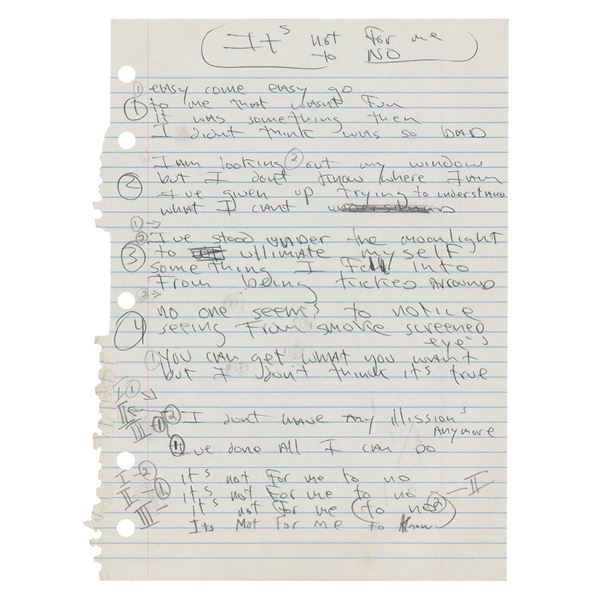 It's not for me
to NO
① easy come easy go
① to me that wasnt Fun
it was something then
I didnt think was so BAD
I am looking ② out my window
② but I don't know where I am
I've given up trying to understand
what I cant
① →
② I've stood under the moonlight
③ to ultimate myself
something I fell into
from being kicked around
② →
no one seems to notice
④ seeing from smoke screened
eye's
① you can get what you want
but I don't think it's true
① →
II ←
② I dont have any illission's
III ① Anymore
① I've done all I can do
I - ② it's not for me to no
II - ① it's not for me to no — II
III - it's not for me (to no)
Its Not For me to Know